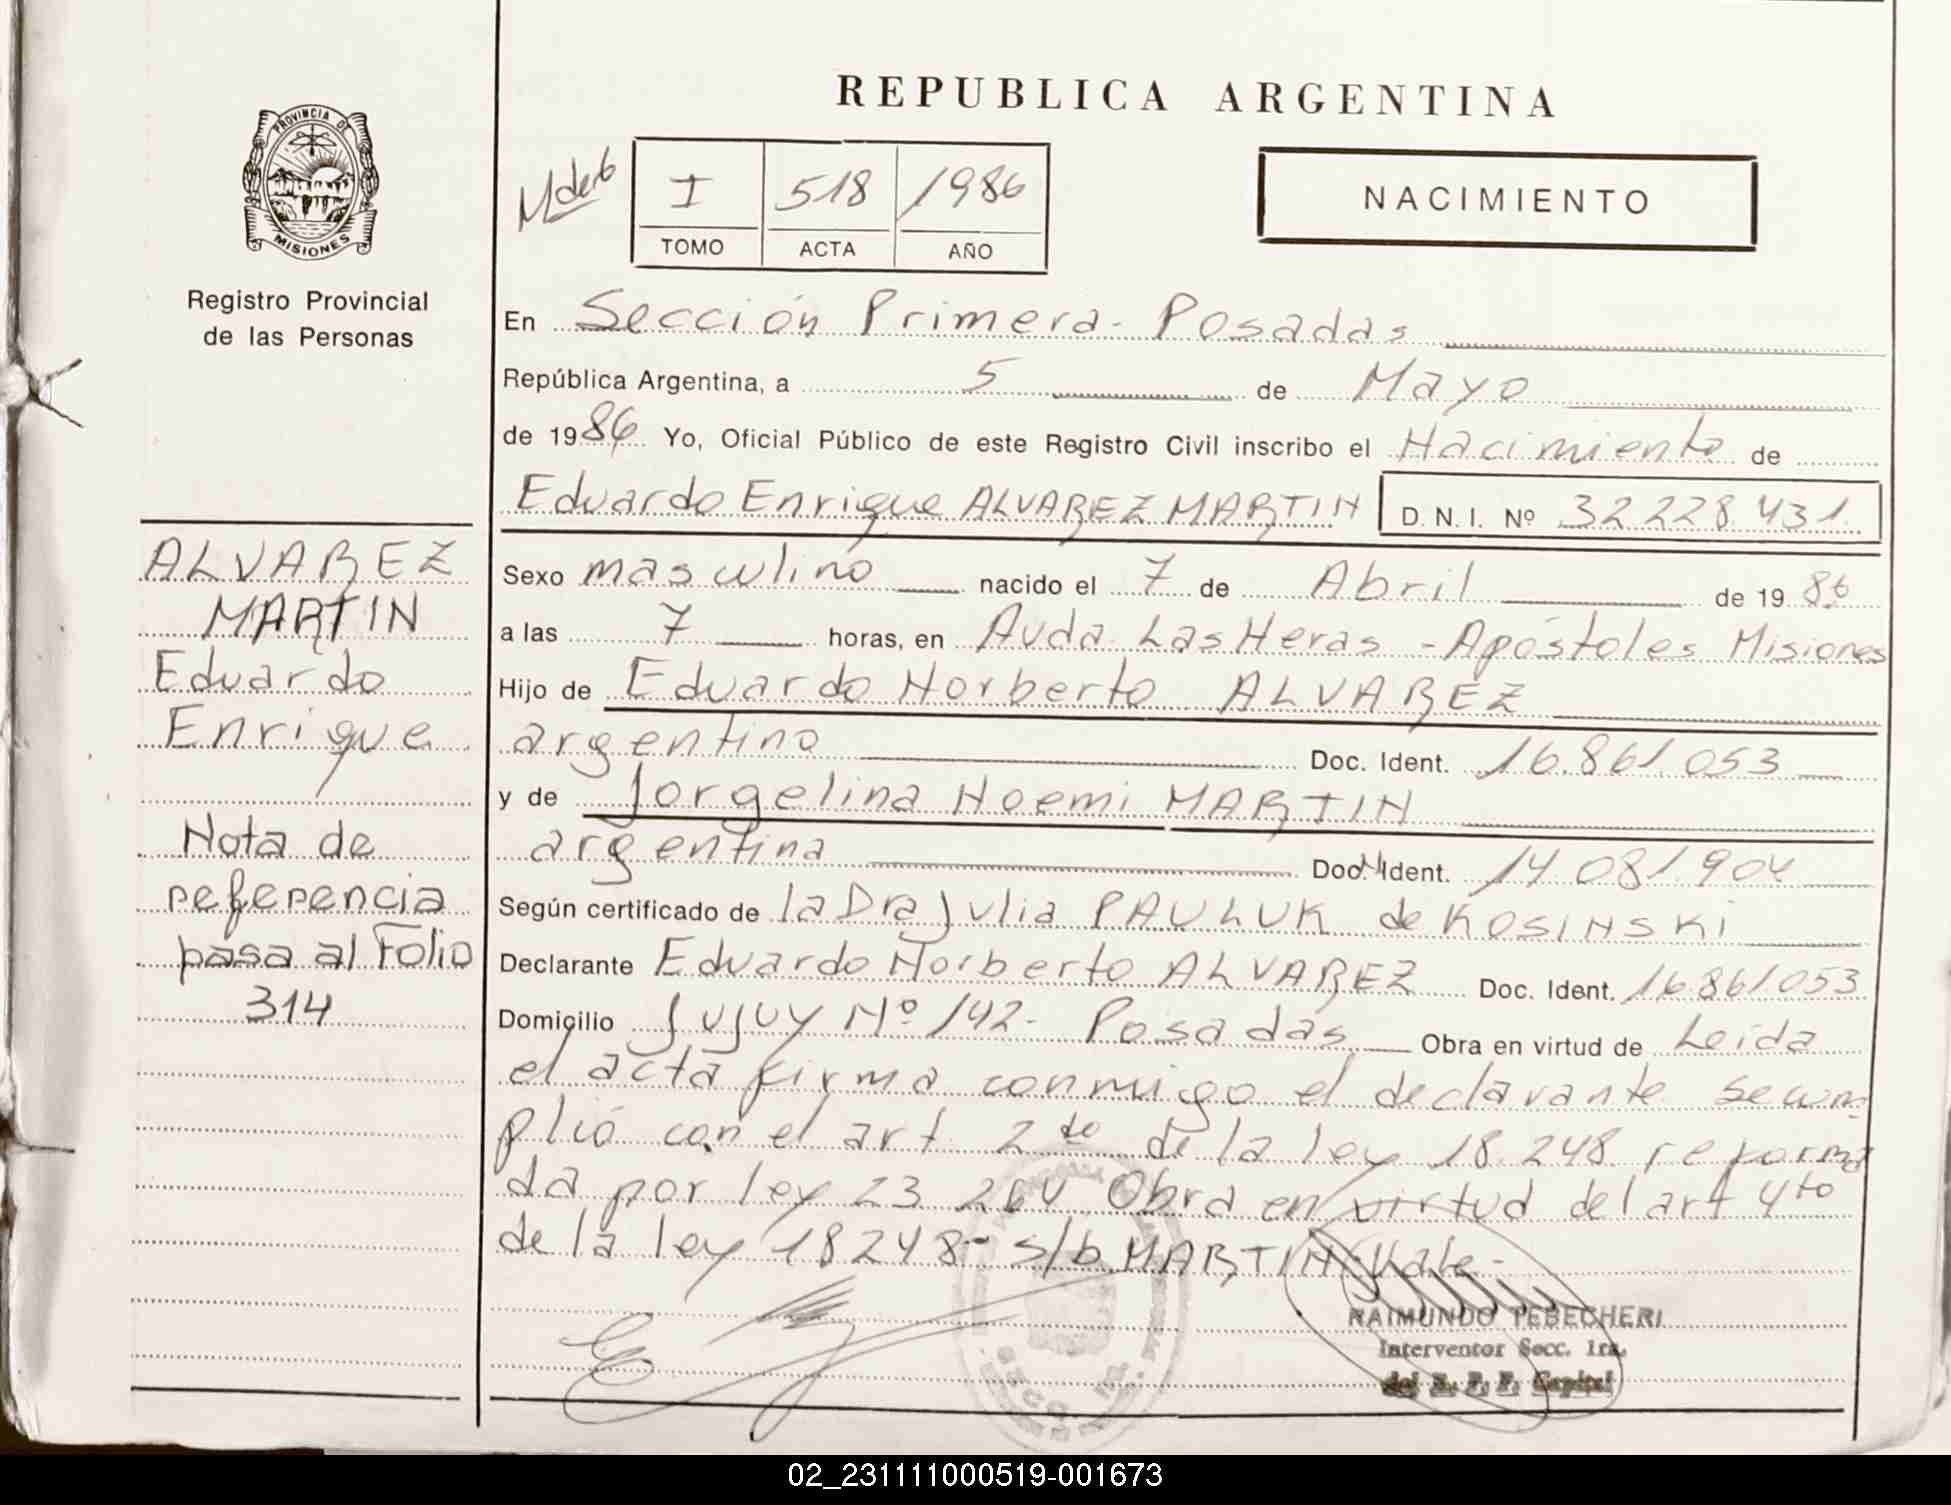 REPUBLICA ARGENTINA
PROVINCIA DE
MISIONES
Registro Provincial
de las Personas
I 518 1986
TOMO ACTA AÑO
NACIMIENTO
En Sección Primera - Posadas
República Argentina, a 5 de Mayo
de 1986 Yo, Oficial Público de este Registro Civil inscribo el Nacimiento de
Eduardo Enrique ALVAREZ MARTIN D.N.I. Nº 32 228 431
Sexo masculino nacido el 7 de Abril de 1986
a las 7 horas, en Avda. Las Heras - Apóstoles Misiones
Hijo de Eduardo Norberto ALVAREZ
argentino Doc. Ident. 16.861.053
y de Jorgelina Noemi MARTIN
argentina Doc. Ident. 14 081 904
Según certificado de la Dra Julia PAULUK de KOSINSKI
Declarante Eduardo Norberto ALVAREZ Doc. Ident. 16861053
Domicilio Jujuy Nº 142- Posadas Obra en virtud de Leida
el acta firma conmigo el declarante se cum
plió con el art 2do de la ley 18.248 reforma
da por ley 23 264 Obra en virtud del art 4to
de la ley 18248- s/b MARTIN Vale-
ALVAREZ
MARTIN
Eduardo
Enrique
Nota de
referencia
pasa al Folio
314
RAIMUNDO TEBECHERI
Interventor Secc. 1ra.
02_231111000519-001673